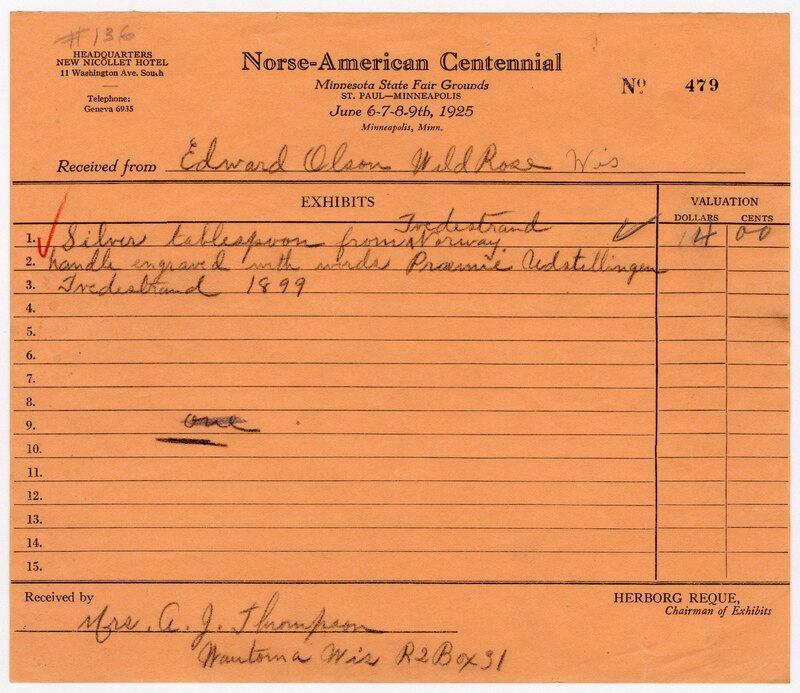 #136
HEADQUARTERS
NEW NICOLLET HOTEL
11 Washington Ave. South
Telephone:
Geneva 6935
Norse-American Centennial
Minnesota State Fair Grounds
ST. PAUL—MINNEAPOLIS
June 6-7-8-9th, 1925
Minneapolis, Minn.
Nº 479
Received from Edward Olson Wild Rose Wis
EXHIBITS
VALUATION
DOLLARS CENTS
Tvedestrand
1. Silver tablespoon from Norway 14 00
2. handle engraved with words Præmie Udstillingen
3. Tvedestrand 1899
4.
5.
6.
7.
8.
9. one
10.
11.
12.
13.
14.
15.
Received by
HERBORG REQUE,
Chairman of Exhibits
Mrs. A. J. Thompson
Wautoma Wis R2 Box 31